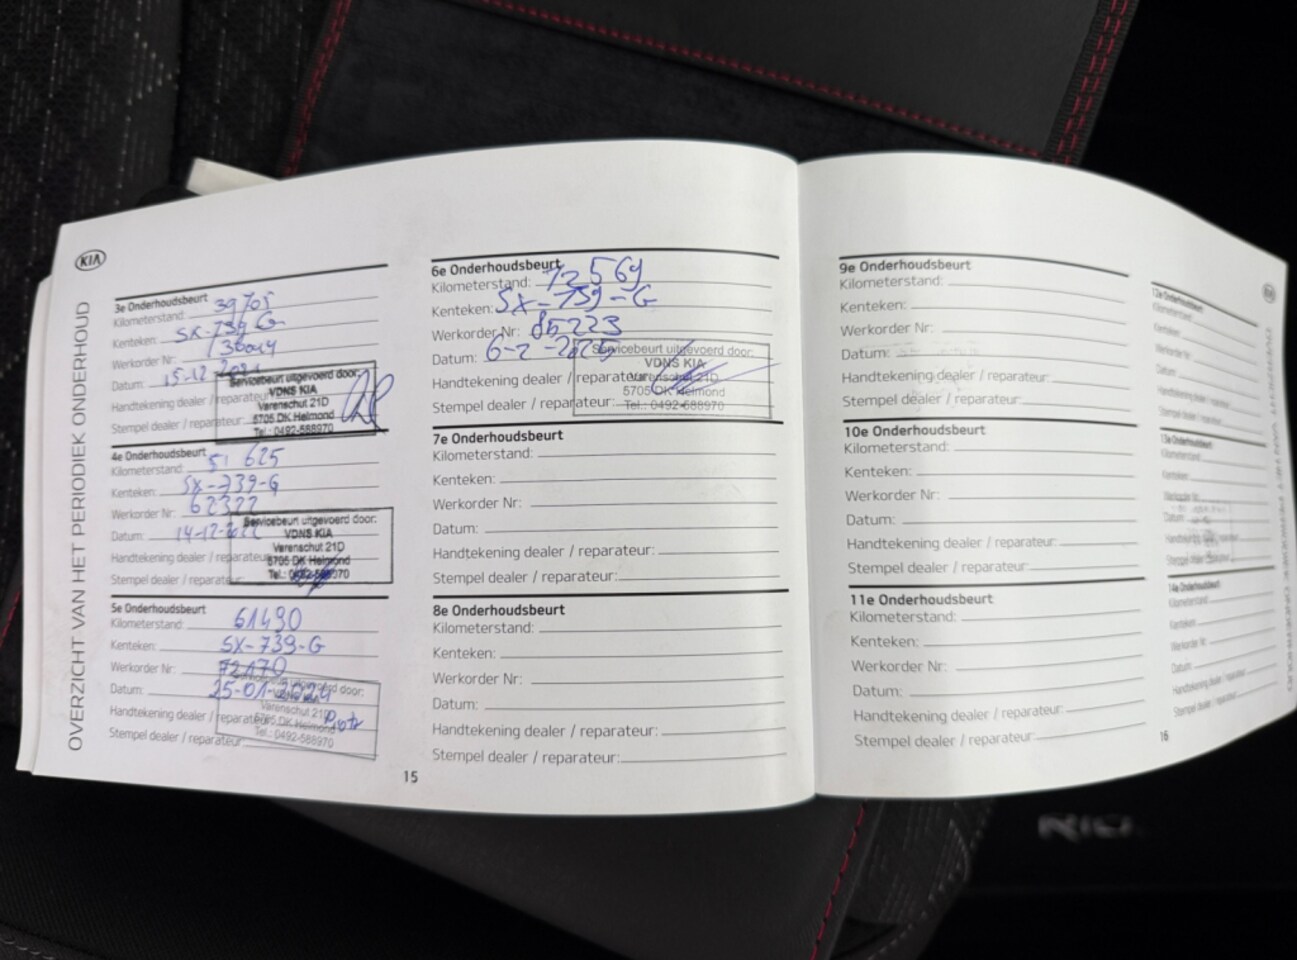 KIA
OVERZICHT VAN HET PERIODIEK ONDERHOUD
3e Onderhoudsbeurt
Kilometerstand: 39705
Kenteken: SX-739-G
Werkorder Nr:
Datum: 15-12-2021
Handtekening dealer / reparateur:
Stempel dealer / reparateur:
Servicebeurt uitgevoerd door:
VDNS KIA
Varenschut 21D
5705 DK Helmond
Tel.: 0492-588970
4e Onderhoudsbeurt
Kilometerstand: 51 625
Kenteken: SX-739-G
Werkorder Nr: 62322
Datum: 14-12-2022
Handtekening dealer / reparateur:
Stempel dealer / reparateur:
Servicebeurt uitgevoerd door:
VDNS KIA
Varenschut 21D
5705 DK Helmond
Tel.: 0492-588970
5e Onderhoudsbeurt
Kilometerstand: 61490
Kenteken: SX-739-G
Werkorder Nr: 72170
Datum: 25-01-2024
Handtekening dealer / reparateur:
Stempel dealer / reparateur:
Varenschut 21D
5705 DK Helmond
Tel.: 0492-588970
15
6e Onderhoudsbeurt
Kilometerstand: 72569
Kenteken: SX-739-G
Werkorder Nr: 85223
Datum: 6-2-2025
Handtekening dealer / reparateur:
Stempel dealer / reparateur:
Servicebeurt uitgevoerd door:
VDNS KIA
Varenschut 21D
5705 DK Helmond
Tel.: 0492-588970
7e Onderhoudsbeurt
Kilometerstand:
Kenteken:
Werkorder Nr:
Datum:
Handtekening dealer / reparateur:
Stempel dealer / reparateur:
8e Onderhoudsbeurt
Kilometerstand:
Kenteken:
Werkorder Nr:
Datum:
Handtekening dealer / reparateur:
Stempel dealer / reparateur:
9e Onderhoudsbeurt
Kilometerstand:
Kenteken:
Werkorder Nr:
Datum:
Handtekening dealer / reparateur:
Stempel dealer / reparateur:
10e Onderhoudsbeurt
Kilometerstand:
Kenteken:
Werkorder Nr:
Datum:
Handtekening dealer / reparateur:
Stempel dealer / reparateur:
11e Onderhoudsbeurt
Kilometerstand:
Kenteken:
Werkorder Nr:
Datum:
Handtekening dealer / reparateur:
Stempel dealer / reparateur:
12e Onderhoudsbeurt
Kilometerstand:
Kenteken:
Werkorder Nr:
Datum:
Handtekening dealer / reparateur:
Stempel dealer / reparateur:
13e Onderhoudsbeurt
Kilometerstand:
Kenteken:
Werkorder Nr:
Datum:
Handtekening dealer / reparateur:
Stempel dealer / reparateur:
14e Onderhoudsbeurt
Kilometerstand:
Kenteken:
Werkorder Nr:
Datum:
Handtekening dealer / reparateur:
Stempel dealer / reparateur:
16